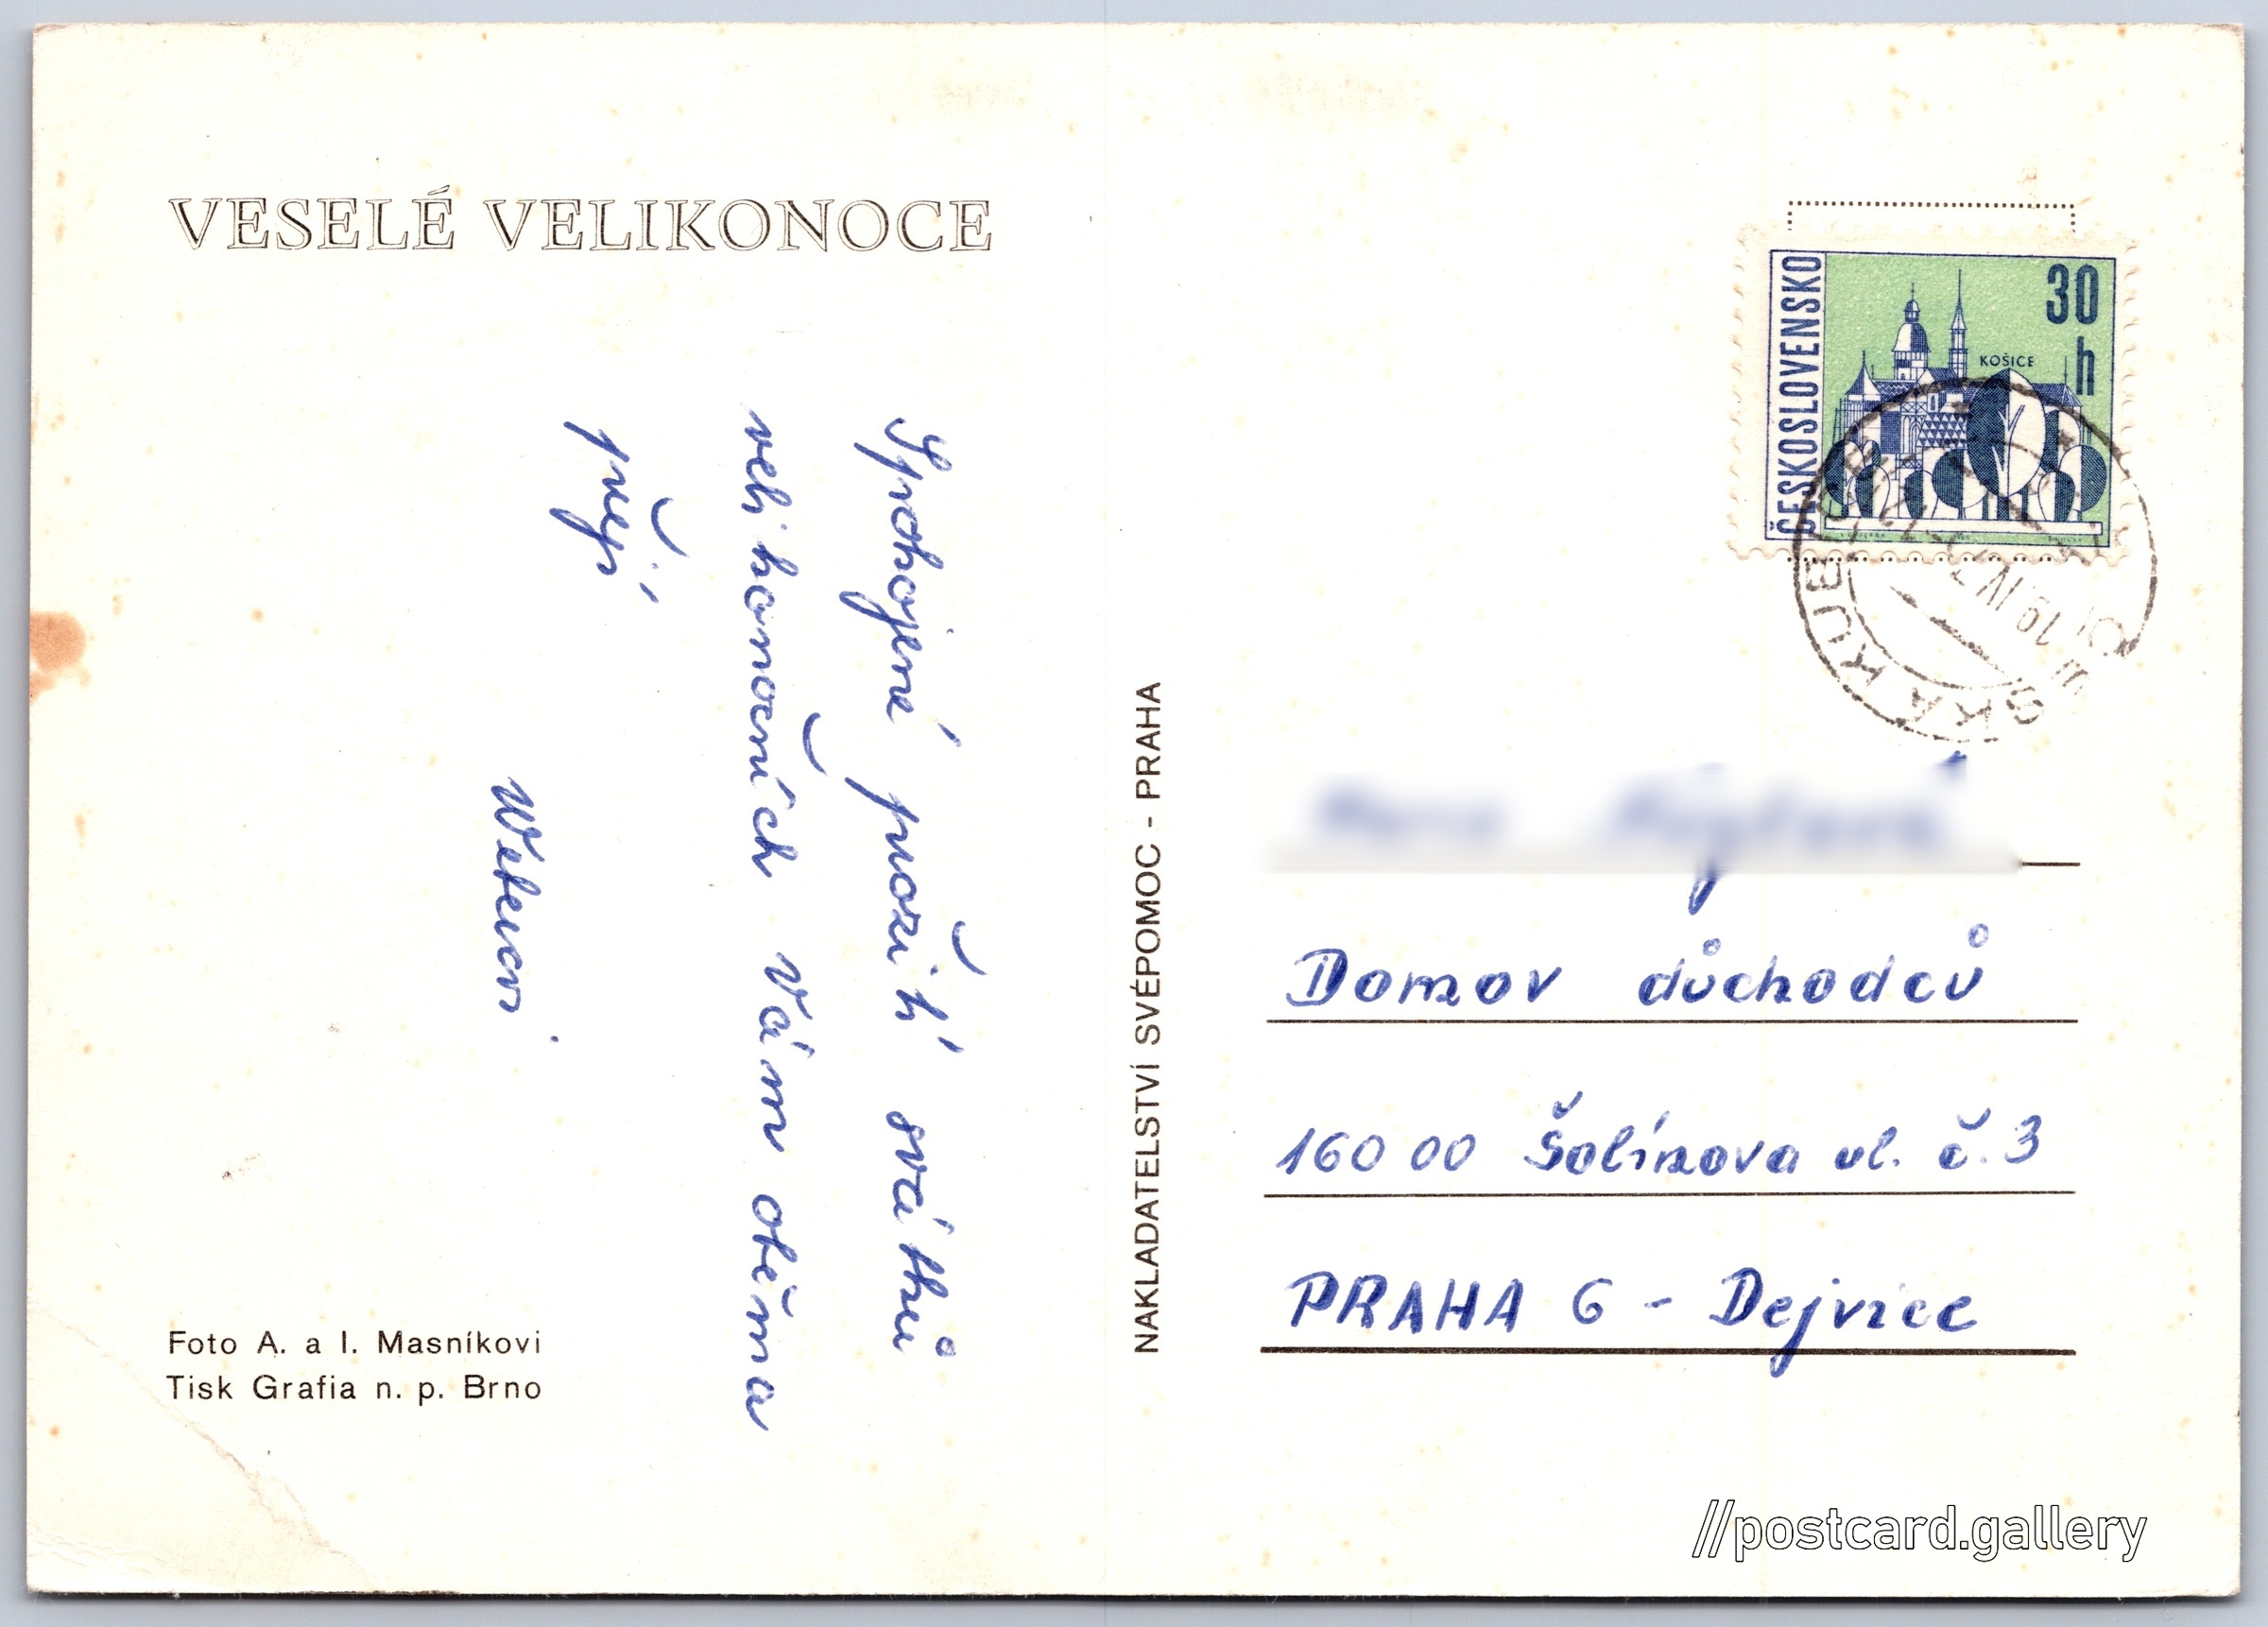 VESELÉ VELIKONOCE
Spokojené prožití svátků
velikonočních Vám oběma
přejí
Foto A. a I. Masníkovi
Tisk Grafia n. p. Brno
NAKLADATELSTVÍ SVÉPOMOC - PRAHA
ČESKOSLOVENSKO
30
h
KOŠICE
SKÁ KUBICE
Domov důchodců
160 00 Šolínova ul. č. 3
PRAHA 6 - Dejvice
//postcard.gallery